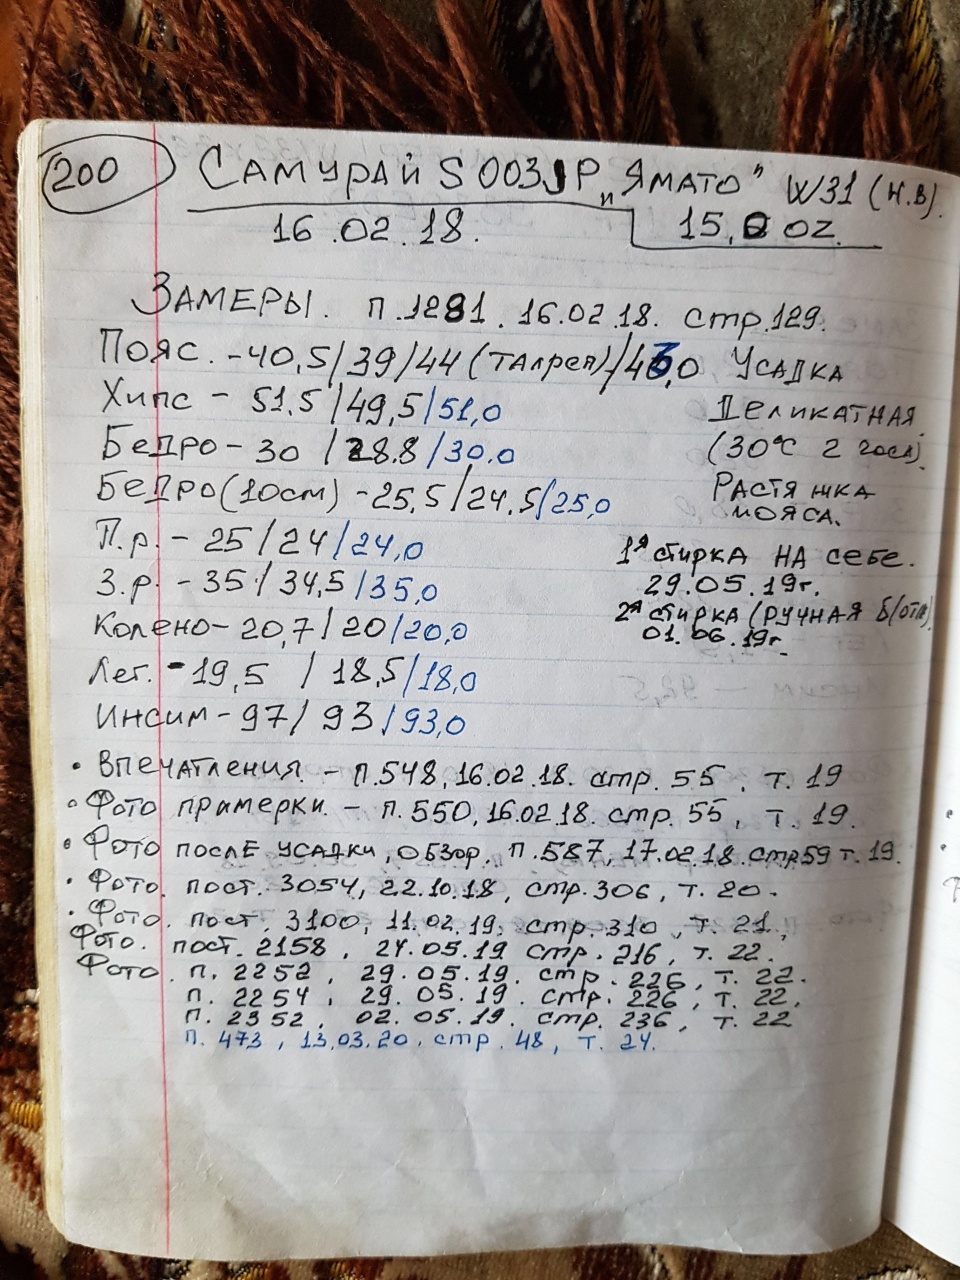 200 Самурай S003JP „Ямато" W31 (н.в).
16.02.18. 15,0 OZ.
Замеры. п.1281. 16.02.18. стр.129.
Пояс. -40,5/39/44 (талреп)/43,0 Усадка
Хипс - 51,5/49,5/51,0 Деликатная
Бедро - 30 /28.8/30.0 (30°C 2 часа).
Бедро(10см) -25,5/24,5/25,0 Растяжка пояса.
П.р. - 25/24/24,0 1я стирка на себе.
З.р. - 35/34,5/35,0 29.05.19г.
Колено- 20,7/20/20,0 2я стирка (ручная б/отж)
01.06.19г.
Лег. -19,5 / 18,5/18,0
Инсим - 97/ 93/93,0
• Впечатления. - п.548, 16.02.18. стр. 55, т. 19
• Фото примерки. - п.550, 16.02.18. стр. 55, т. 19.
• Фото после усадки, обзор. п.587, 17.02.18. стр59 т.19.
• Фото. пост. 3054, 22.10.18, стр.306, т. 20.
• Фото. пост. 3100, 11.02.19, стр. 310, т. 21,
Фото. пост. 2158, 24.05.19 стр. 216, т. 22.
Фото. п. 2252, 29.05.19. стр. 226, т. 22.
п. 2254, 29.05.19. стр. 226, т. 22,
п. 2352, 02.05.19. стр. 236, т. 22
п. 473, 13.03.20. стр. 48, т. 24.